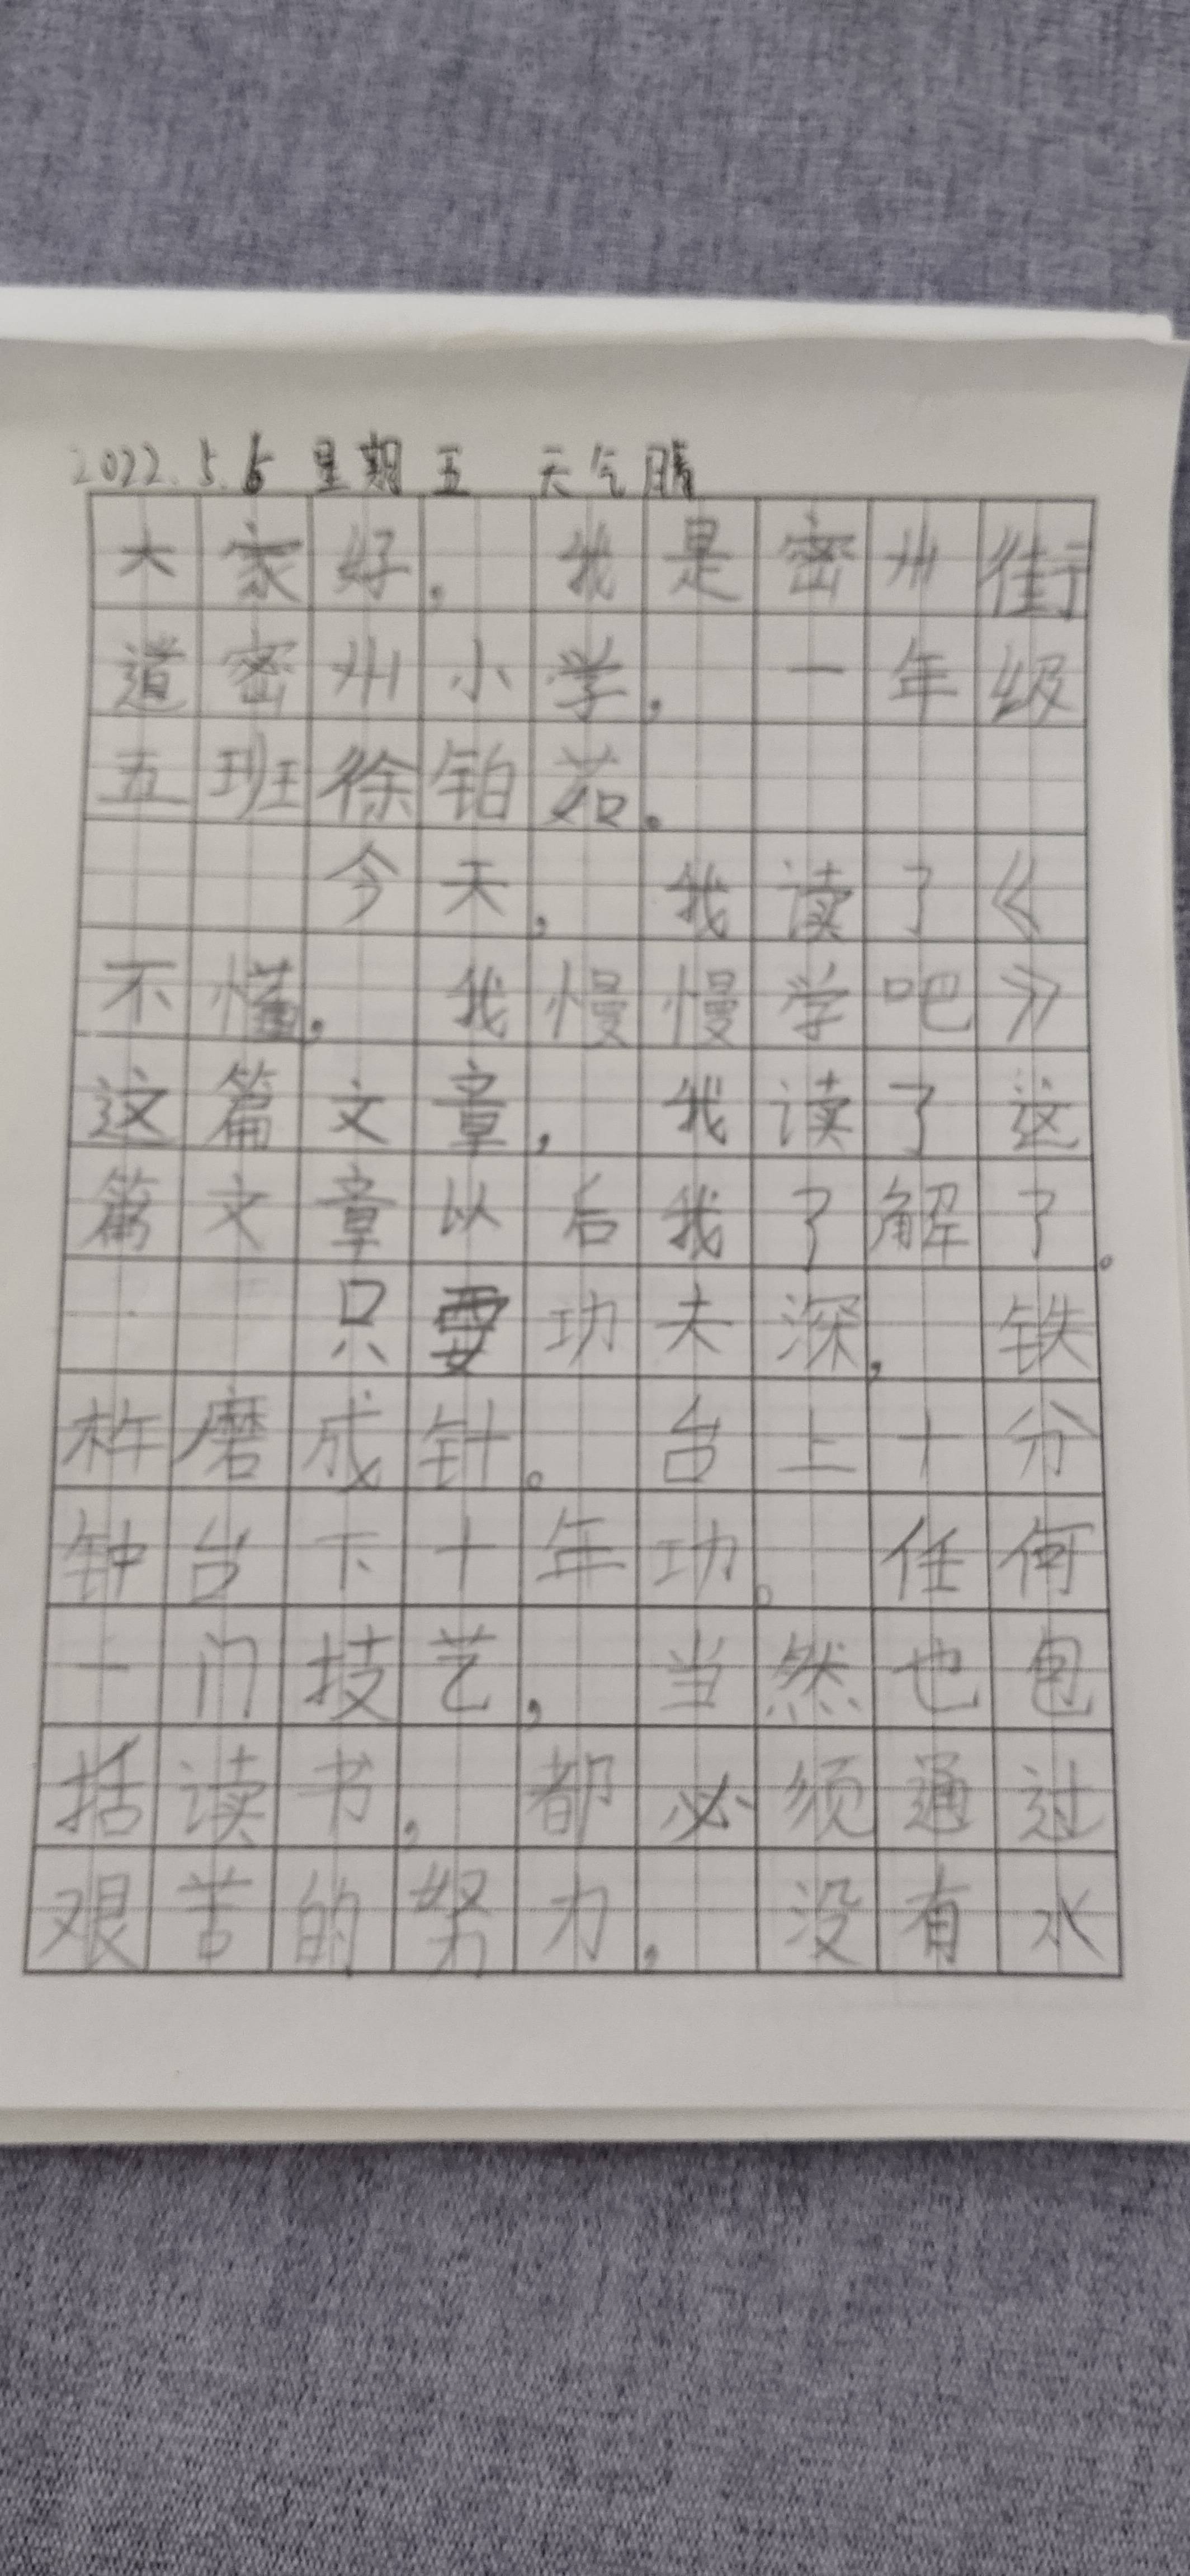 2022.5.6 星期五 天气晴
大家好，我是密州街
道密州小学，一年级
五班徐铂茹。
今天，我读了《
不懂，我慢慢学吧》
这篇文章，我读了这
篇文章以后我了解了。
只要功夫深，铁
杵磨成针。台上十分
钟台下十年功。任何
一门技艺，当然也包
括读书，都必须通过
艰苦的努力，没有水